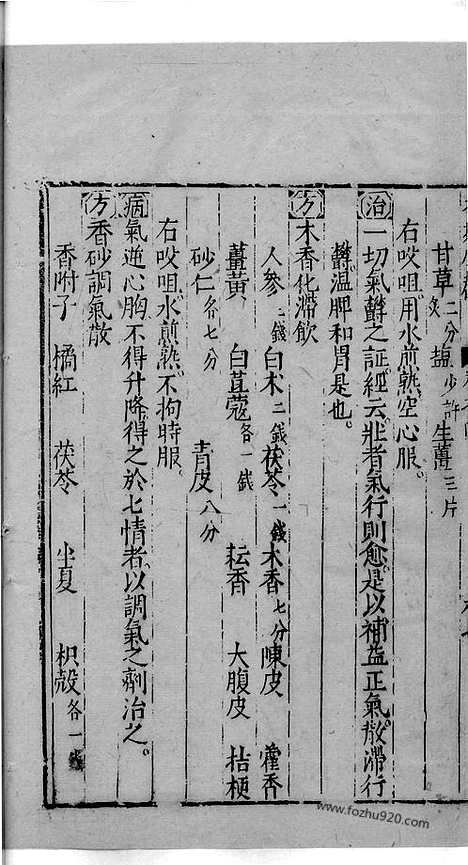 甘草二分炙 鹽少許 生薑三片
右㕮咀用水煎熟空心服。
治一切氣欝之証經云壯者氣行則愈是以補益正氣散滯行
欝溫脾和胃是也。
方木香化滯飲
人參二錢 白术二錢 茯苓一錢 木香七分 陳皮 藿香
薑黄 白荳蔻各一錢 耘香 大腹皮 桔梗
砂仁各七分 青皮八分
右㕮咀水煎熟不拘時服。
病氣逆心胸不得升降得之於七情者以調氣之劑治之。
方香砂調氣散
香附子 橘紅 茯苓 半夏 枳殻各一錢
www.fozhu920.com